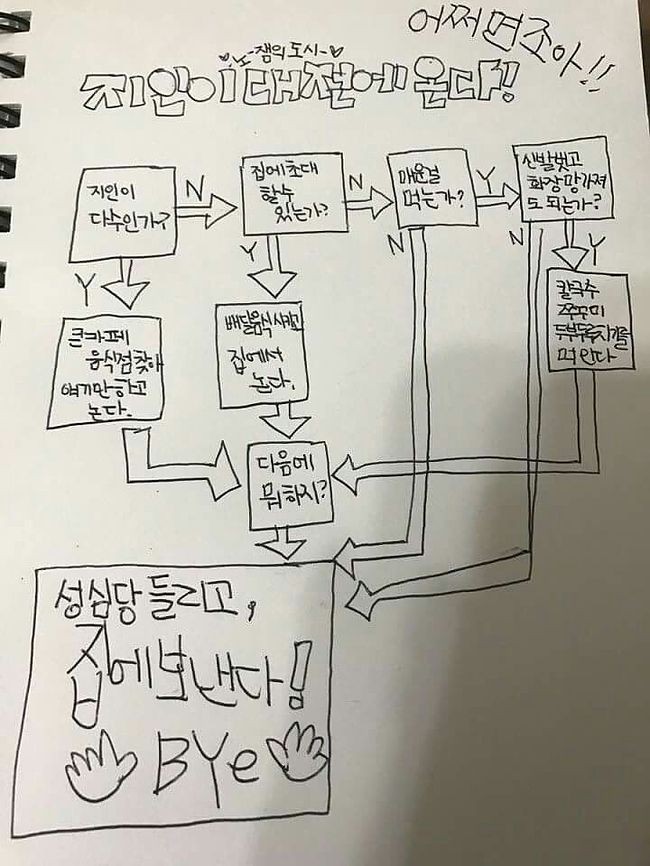 어쩌면조아!!
♥노-잼의도시-♥
지인이대전에온다!
지인이
다수인가?
N
집에초대
할수
있는가?
N
매운걸
먹는가?
Y
신발벗고
화장망가져
도되는가?
Y
Y
N
N
Y
큰카페
음식점찾아
얘기만하고
논다.
배달음식시키고
집에서
논다.
칼국수
쭈꾸미
두부두루치기를
먹인다
다음에
뭐하지?
성심당들리고,
집에보낸다!
BYe